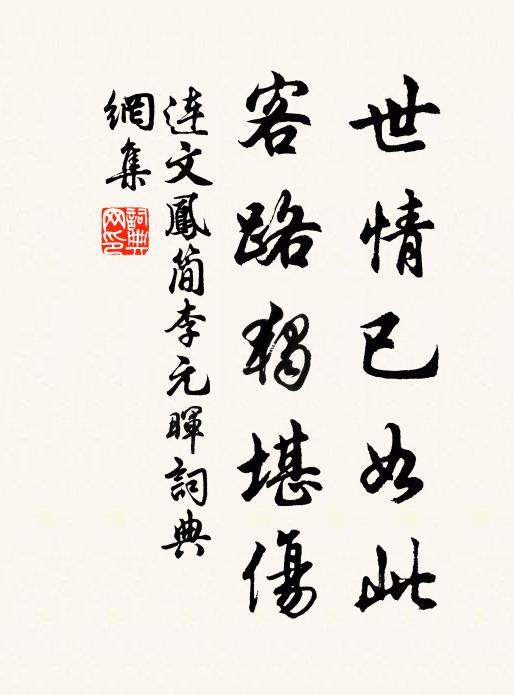 世情已如此
客路独堪傷
连文鳳简李元暉詞典
網集
詞典网印